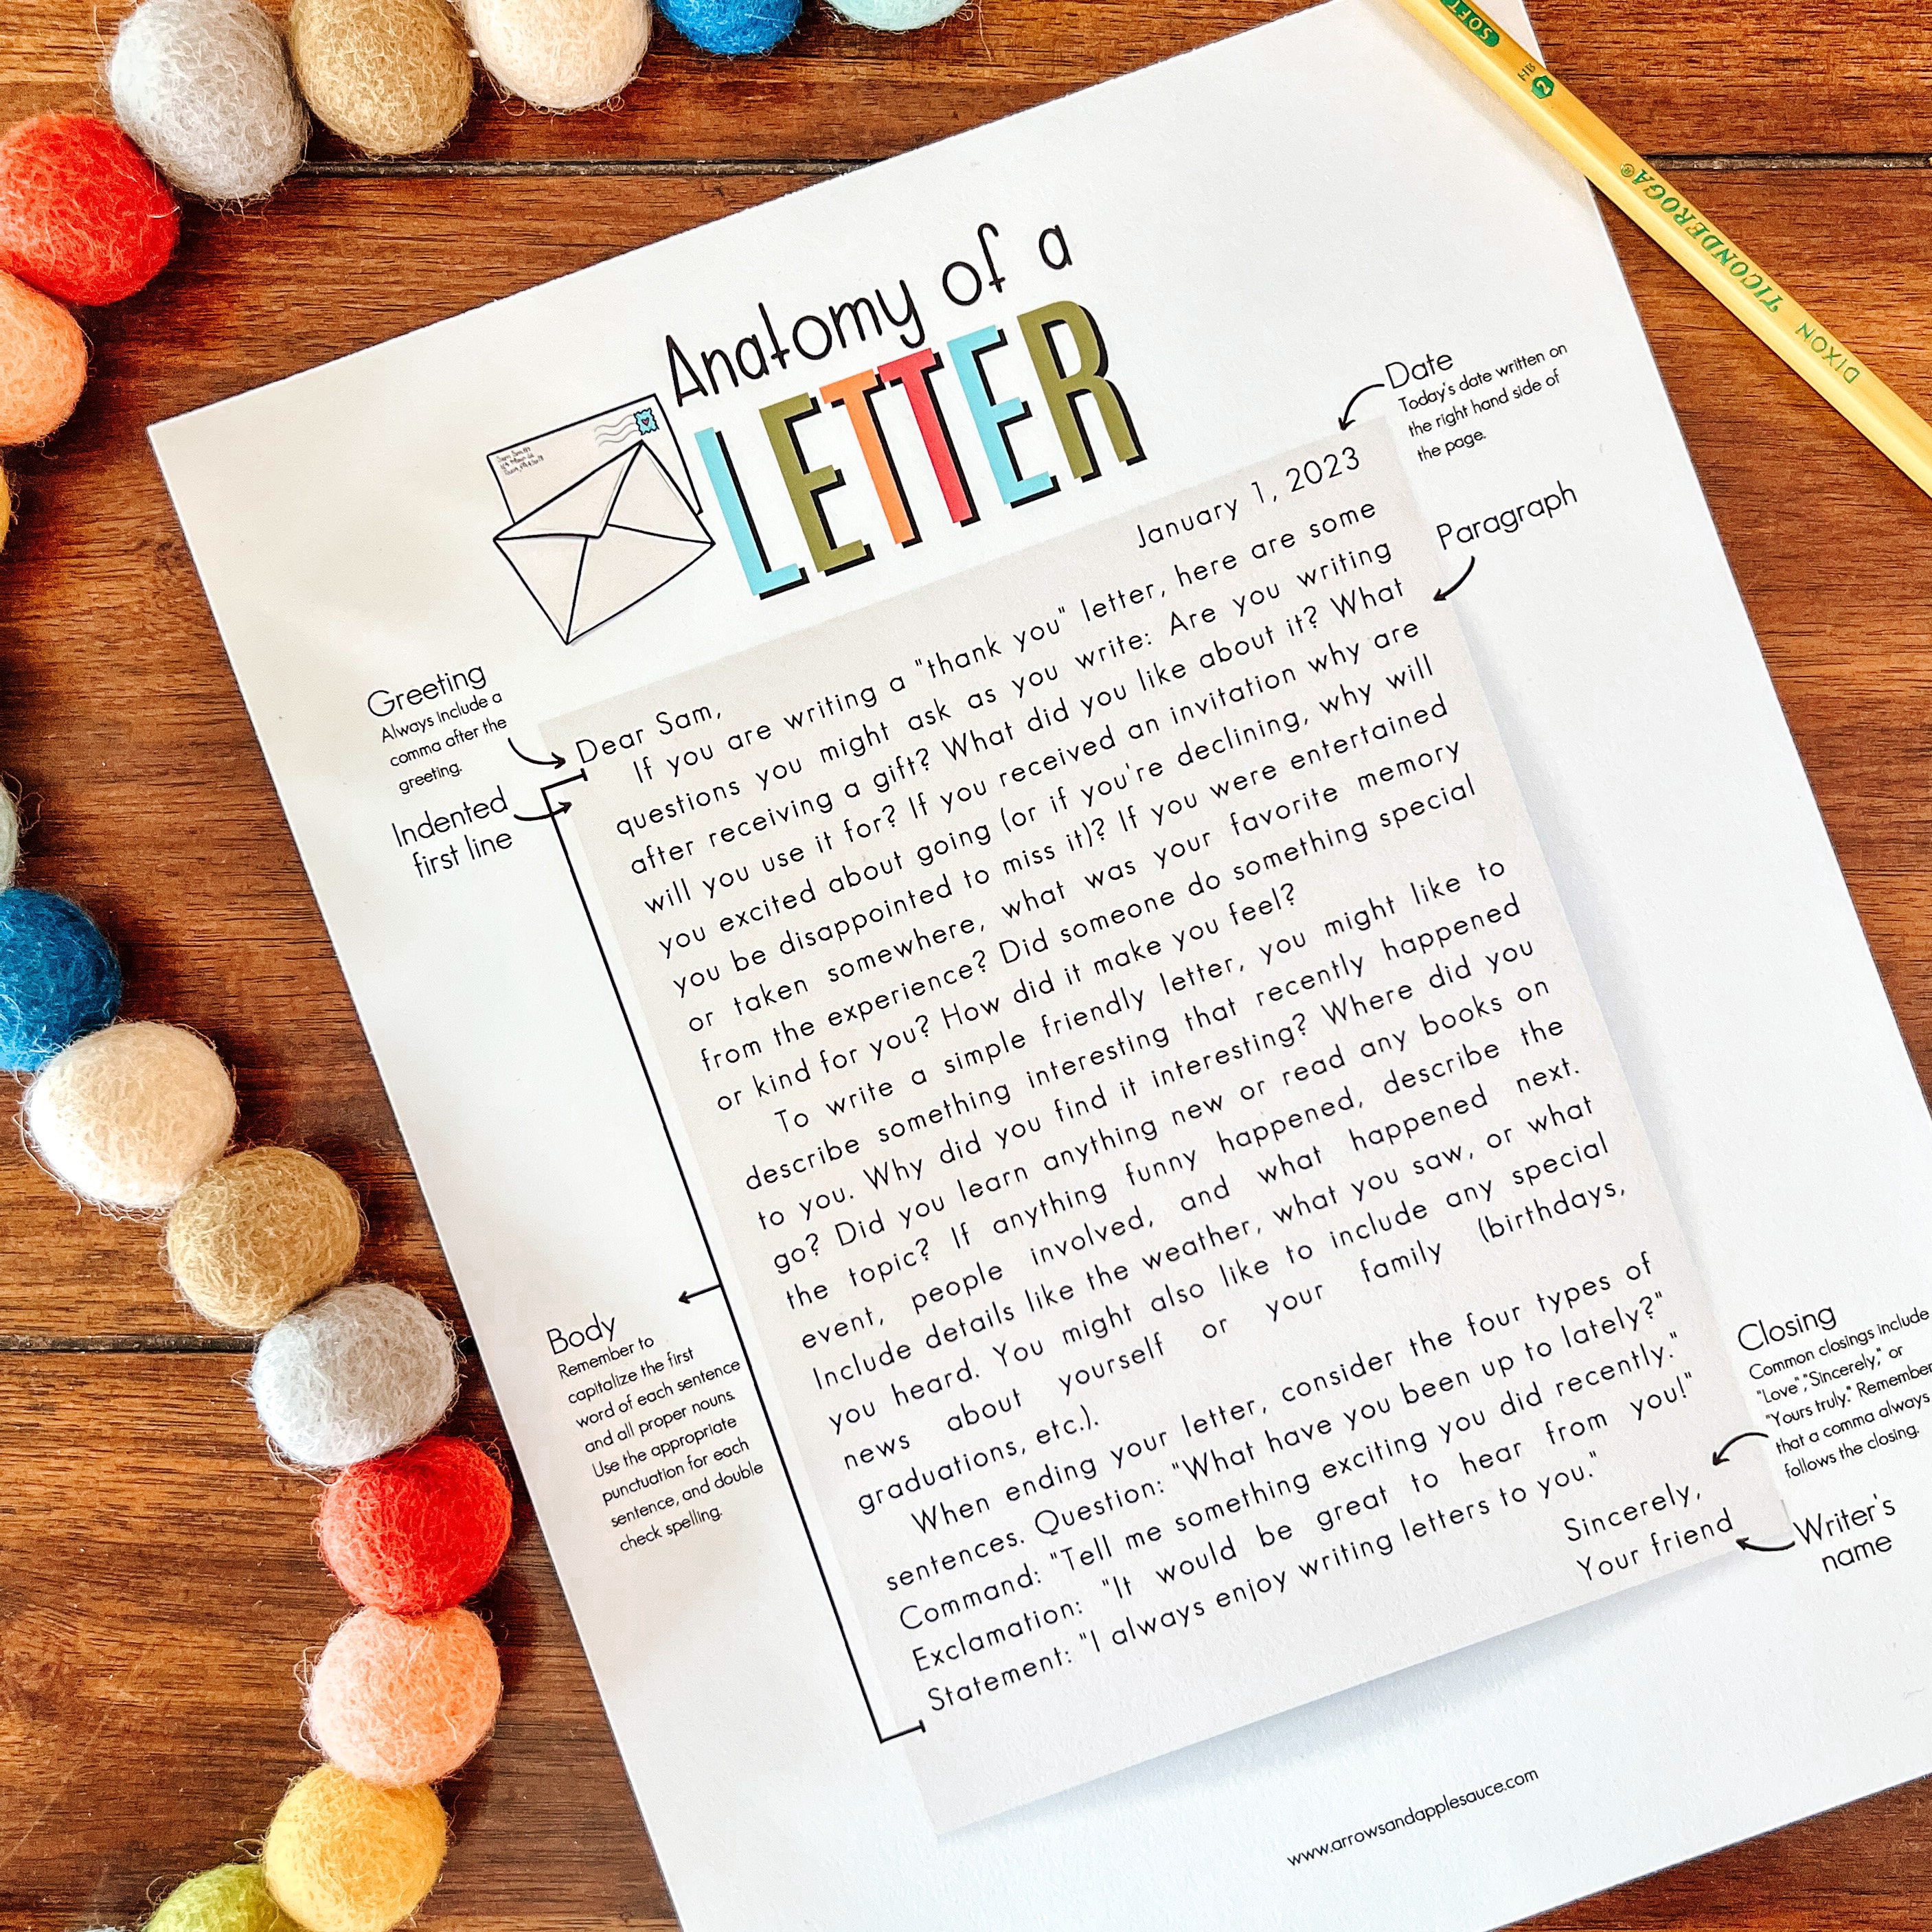 SOFT
HB
2
TICONDEROGA®
DIXON
Anatomy of a
LETTER
Date
Today's date written on
the right hand side of
the page.
January 1, 2023
Paragraph
Greeting
Always include a
comma after the
greeting.
Indented
first line
Dear Sam,
If you are writing a "thank you" letter, here are some
questions you might ask as you write: Are you writing
after receiving a gift? What did you like about it? What
will you use it for? If you received an invitation why are
you excited about going (or if you're declining, why will
you be disappointed to miss it)? If you were entertained
or taken somewhere, what was your favorite memory
from the experience? Did someone do something special
or kind for you? How did it make you feel?
To write a simple friendly letter, you might like to
describe something interesting that recently happened
to you. Why did you find it interesting? Where did you
go? Did you learn anything new or read any books on
the topic? If anything funny happened, describe the
event, people involved, and what happened next.
Include details like the weather, what you saw, or what
you heard. You might also like to include any special
news about yourself or your family (birthdays,
graduations, etc.).
When ending your letter, consider the four types of
sentences. Question: "What have you been up to lately?"
Command: "Tell me something exciting you did recently."
Exclamation: "It would be great to hear from you!"
Statement: "I always enjoy writing letters to you."
Sincerely,
Your friend
Body
Remember to
capitalize the first
word of each sentence
and all proper nouns.
Use the appropriate
punctuation for each
sentence, and double
check spelling.
Closing
Common closings include
"Love", "Sincerely," or
"Yours truly." Remember
that a comma always
follows the closing.
Writer's
name
www.arrowsandapplesauce.com